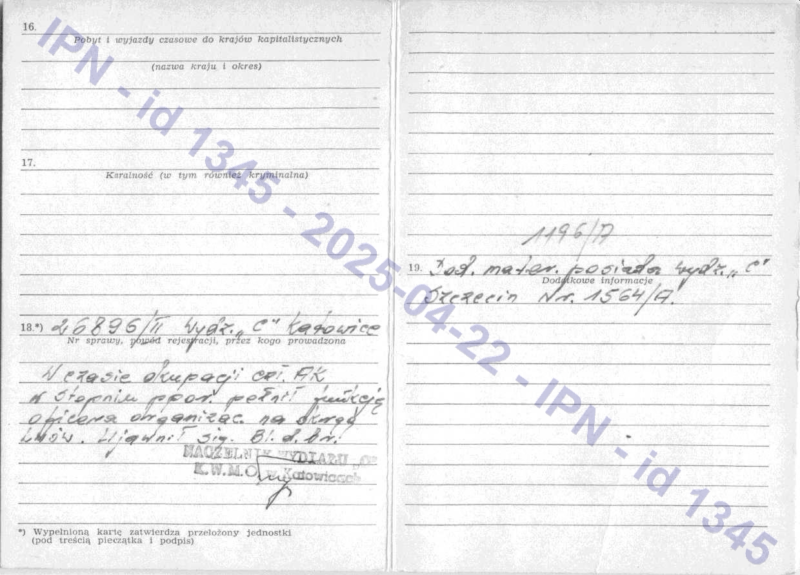 16.
Pobyt i wyjazdy czasowe do krajów kapitalistycznych
(nazwa kraju i okres)
17.
Karalność (w tym również kryminalna)
18.*) 26896/II Wydz. „C" Katowice
Nr sprawy, powód rejestracji, przez kogo prowadzona
W czasie okupacji czł. AK
w stopniu ppor. pełnił funkcję
oficera organizac. na okręg
Lwów. Ujawnił się. Bl. d. br.
NACZELNIK WYDZIAŁU „C"
K.W.M.O. w Katowicach
*) Wypełnioną kartę zatwierdza przełożony jednostki
(pod treścią pieczątka i podpis)
1196/A
19. Dod. mater. posiada Wydz. „C"
Dodatkowe informacje
Szczecin Nr. 1564/A.
IPN - id 1345 - 2025-04-22 - IPN - id 1345